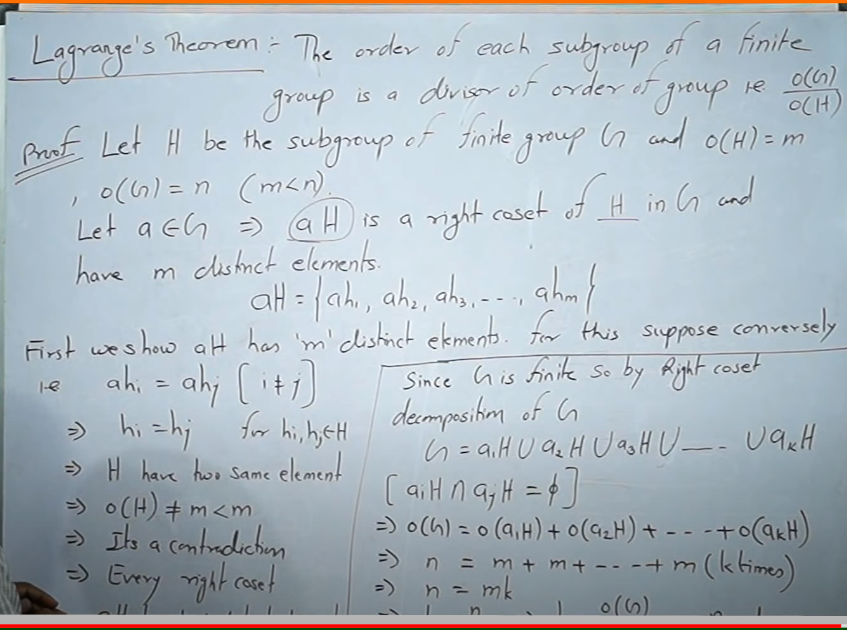 Lagrange's Theorem :- The order of each subgroup of a finite
group is a divisor of order of group ie. o(G)/o(H)
Proof Let H be the subgroup of finite group G and o(H) = m
, o(G) = n (m<n).
Let a ∈ G ⇒ aH is a right coset of H in G and
have m distinct elements.
aH = {ah₁, ah₂, ah₃, ---, ahm}
First we show aH has 'm' distinct elements. for this suppose conversely
i-e ahᵢ = ahⱼ [i ≠ j]
⇒ hᵢ = hⱼ for hᵢ, hⱼ ∈ H
⇒ H have two same element
⇒ o(H) ≠ m < m
⇒ Its a contradiction
⇒ Every right coset
Since G is finite so by Right coset
decomposition of G
G = a₁H ∪ a₂H ∪ a₃H ∪ ---- ∪ aₖH
[aᵢH ∩ aⱼH = ϕ]
⇒ o(G) = o(a₁H) + o(a₂H) + ---- + o(aₖH)
⇒ n = m + m + ---- + m (k times)
⇒ n = mk
o(G)